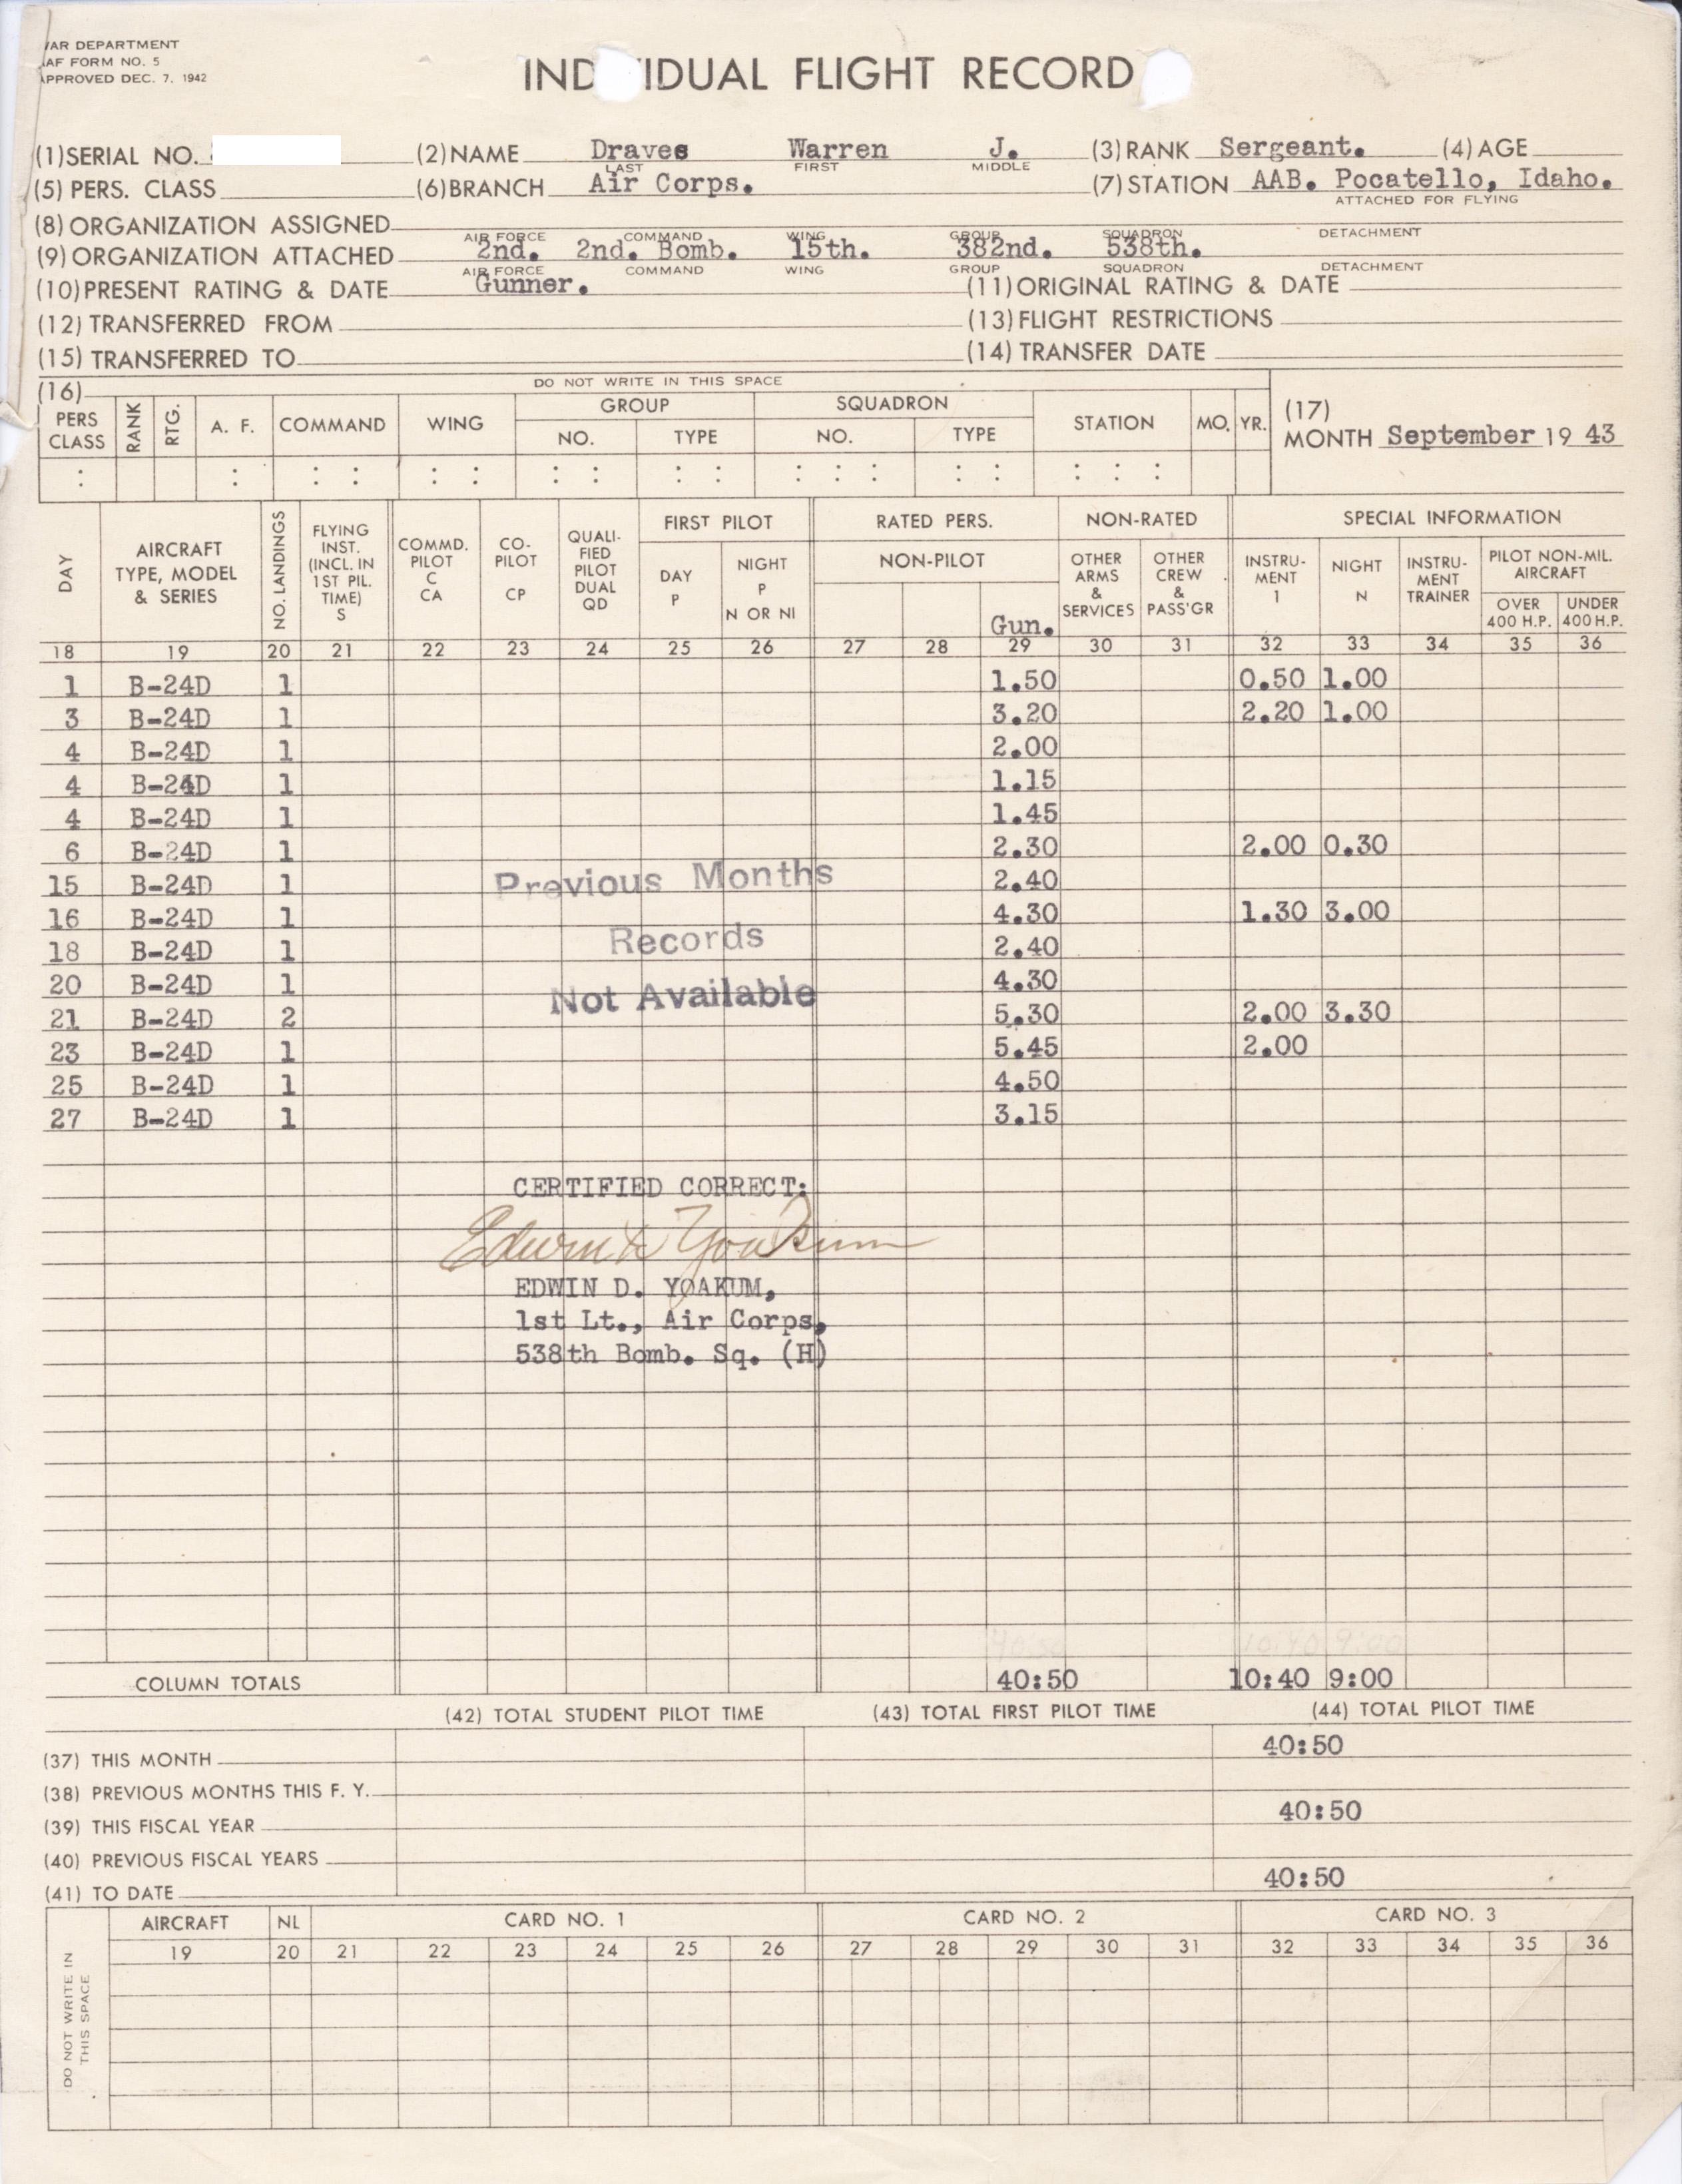 WAR DEPARTMENT
AAF FORM NO. 5
APPROVED DEC. 7, 1942
INDIVIDUAL FLIGHT RECORD
(1) SERIAL NO. (2) NAME Draves Warren J. (3) RANK Sergeant. (4) AGE
LAST FIRST MIDDLE
(5) PERS. CLASS (6) BRANCH Air Corps. (7) STATION AAB. Pocatello, Idaho.
ATTACHED FOR FLYING
(8) ORGANIZATION ASSIGNED
AIR FORCE COMMAND WING GROUP SQUADRON DETACHMENT
(9) ORGANIZATION ATTACHED 2nd. 2nd. Bomb. 15th. 382nd. 538th.
AIR FORCE COMMAND WING GROUP SQUADRON DETACHMENT
(10) PRESENT RATING & DATE Gunner. (11) ORIGINAL RATING & DATE
(12) TRANSFERRED FROM (13) FLIGHT RESTRICTIONS
(15) TRANSFERRED TO (14) TRANSFER DATE
(16) DO NOT WRITE IN THIS SPACE
PERS CLASS RANK RTG. A. F. COMMAND WING GROUP NO. TYPE SQUADRON NO. TYPE STATION MO. YR.
(17) MONTH September 19 43
DAY AIRCRAFT TYPE, MODEL & SERIES NO. LANDINGS FLYING INST. (INCL. IN 1ST PIL. TIME) S COMMD. PILOT C CA CO-PILOT CP QUALI-FIED PILOT DUAL QD FIRST PILOT DAY P NIGHT P N OR NI RATED PERS. NON-PILOT Gun. NON-RATED OTHER ARMS & SERVICES OTHER CREW & PASS'GR SPECIAL INFORMATION INSTRU-MENT I NIGHT N INSTRU-MENT TRAINER PILOT NON-MIL. AIRCRAFT OVER 400 H.P. UNDER 400 H.P.
18 19 20 21 22 23 24 25 26 27 28 29 30 31 32 33 34 35 36
1 B-24D 1 1.50 0.50 1.00
3 B-24D 1 3.20 2.20 1.00
4 B-24D 1 2.00
4 B-24D 1 1.15
4 B-24D 1 1.45
6 B-24D 1 2.30 2.00 0.30
15 B-24D 1 Previous Months 2.40
16 B-24D 1 4.30 1.30 3.00
18 B-24D 1 Records 2.40
20 B-24D 1 4.30
Not Available
21 B-24D 2 5.30 2.00 3.30
23 B-24D 1 5.45 2.00
25 B-24D 1 4.50
27 B-24D 1 3.15
CERTIFIED CORRECT:
Edwin D Yoakum
EDWIN D. YOAKUM,
1st Lt., Air Corps,
538th Bomb. Sq. (H)
40:50 10:40 9:00
COLUMN TOTALS 40:50 10:40 9:00
(42) TOTAL STUDENT PILOT TIME (43) TOTAL FIRST PILOT TIME (44) TOTAL PILOT TIME
(37) THIS MONTH 40:50
(38) PREVIOUS MONTHS THIS F. Y.
(39) THIS FISCAL YEAR 40:50
(40) PREVIOUS FISCAL YEARS
(41) TO DATE 40:50
DO NOT WRITE IN THIS SPACE
AIRCRAFT NL CARD NO. 1 CARD NO. 2 CARD NO. 3
19 20 21 22 23 24 25 26 27 28 29 30 31 32 33 34 35 36